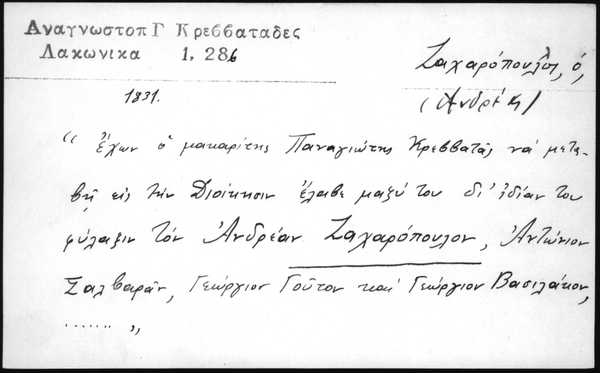 Αναγνωστοπ Γ Κρεββαταδες
Λακωνικα 1, 286
Ζαχαρόπουλος, ὁ,
(Ἀνδρέας)
1831.
“ Ἔχων ὁ μακαρίτης Παναγιώτης Κρεββατᾶς νά μετα-
βῇ εἰς τήν Διοίκησιν ἔλαβε μαζύ του δι’ ἰδίαν του
φύλαξιν τόν Ἀνδρέαν Ζαχαρόπουλον, Ἀντώνιον
Σαλβαρᾶν, Γεώργιον Γοῦτον καί Γεώργιον Βασιλάκον,
....... ”